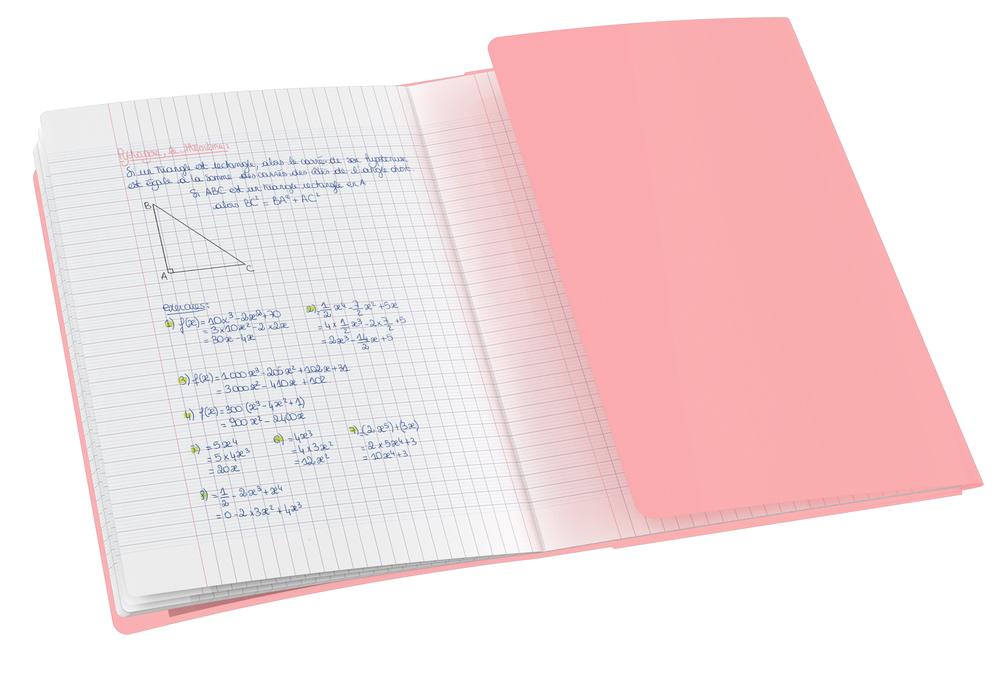 Si un triangle est rectangle, alors le carré de son hypoténuse
est égale à la somme des carrés des côtés de l'angle droit
Si ABC est un triangle rectangle en A
alors BC² = BA² + AC²
B
A
C
exercices:
1) f(x) = 10x³ - 2x² + 70
= 3×10x² - 2×2x
= 30x - 4x
2) = 1/2 x⁴ - 7/2 x² + 5x
= 4×1/2 x³ - 2×7/2 + 5
= 2x³ - 14/2 x + 5
3) f(x) = 1000x³ - 205x² + 102x + 31
= 3000x² - 410x + 102
4) f(x) = 300 (x³ - 4x² + 1)
= 900x² - 2400x
5) = 5x⁴
= 5×4x³
= 20x
6) = 4x³
= 4×3x²
= 12x²
7) (2x⁵) + (3x)
= 2×5x⁴ + 3
= 10x⁴ + 3
= 1/2 - 2x³ + x⁴
= 0 - 2×3x² + 4x³